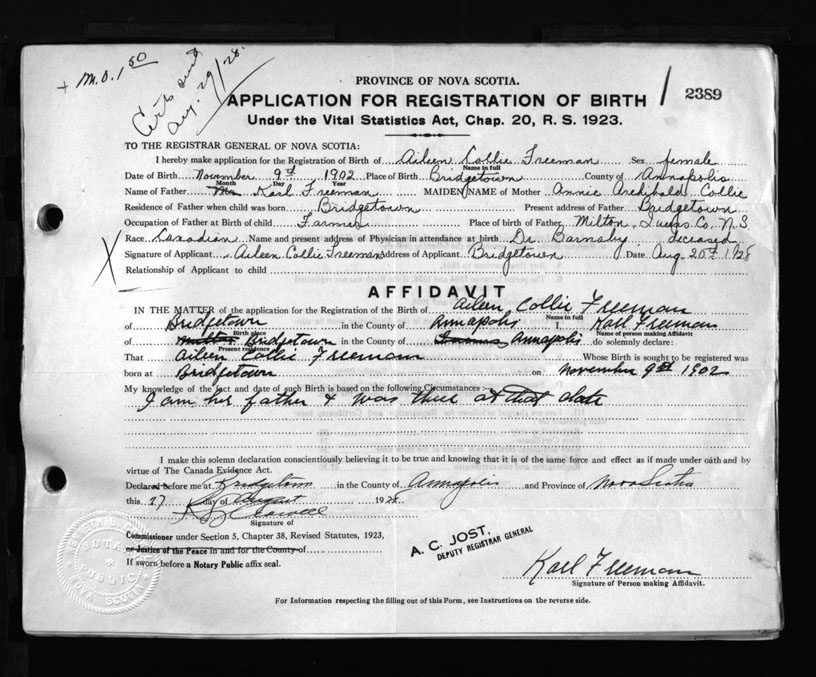 + M.O. 1 50
Cert sent
Aug. 29/28.
PROVINCE OF NOVA SCOTIA.
APPLICATION FOR REGISTRATION OF BIRTH / 2389
Under the Vital Statistics Act, Chap. 20, R. S. 1923.
TO THE REGISTRAR GENERAL OF NOVA SCOTIA:
I hereby make application for the Registration of Birth of Aileen Collie Freeman Sex female
Name in full
Date of Birth November 9th 1902 Place of Birth Bridgetown County of Annapolis
Month Day Year
Name of Father Karl Freeman MAIDEN NAME of Mother Annie Archibald Collie
Residence of Father when child was born Bridgetown Present address of Father Bridgetown
Occupation of Father at Birth of child Farmer Place of birth of Father Milton, Co., N.S.
Race Canadian Name and present address of Physician in attendance at birth Dr. Barnaby deceased
Signature of Applicant Aileen Collie Freeman Address of Applicant Bridgetown Date Aug. 20th 1928
X Relationship of Applicant to child
AFFIDAVIT
IN THE MATTER of the application for the Registration of Birth of Aileen Collie Freeman
Name in full
of Bridgetown in the County of Annapolis I, Karl Freeman
Birth place Name of person making Affidavit
of Bridgetown in the County of Annapolis do solemnly declare:
Present residence
That Aileen Collie Freeman Whose Birth is sought to be registered was
born at Bridgetown on November 9th 1902
My knowledge of the fact and date of such Birth is based on the following Circumstances :—
I am her father & was there at that date
I make this solemn declaration conscientiously believing it to be true and knowing that it is of the same force and effect as if made under oath and by
virtue of The Canada Evidence Act.
Declared before me at Bridgetown in the County of Annapolis and Province of Nova Scotia
this 27 day of August 1928
Signature of
Commissioner under Section 5, Chapter 38, Revised Statutes, 1923,
or Justice of the Peace in and for the County of
If sworn before a Notary Public affix seal.
A. C. JOST,
DEPUTY REGISTRAR GENERAL
Karl Freeman
Signature of Person making Affidavit.
NOTARY
PUBLIC
NOVA SCOTIA
For Information respecting the filling out of this Form, see Instructions on the reverse side.